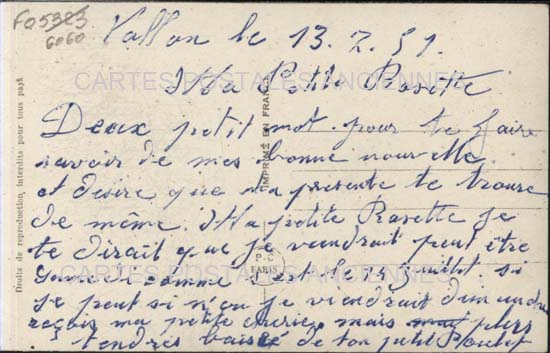 FO5383
6060
Vallon le 13.7.51.
Ma Petite Rosette
CARTES POSTALES ANCIENNES
Deux petit mot pour te faire
savoir de mes bonne nouvelle.
et désire que ma présente te trouve
de même. Ma petite Rosette je
te dirait que je viendrait peut être
Samedi comme c'est le Juillet. si
je peut si n'on je viendrait dimanche
reçois ma petite chérie mais plus
tendres baisé de ton petit Poulet
CARTES POSTALES ANCIENNES
IMPRIMÉ EN FRANCE
P.-C
PARIS
Droits de reproduction interdits pour tous pays